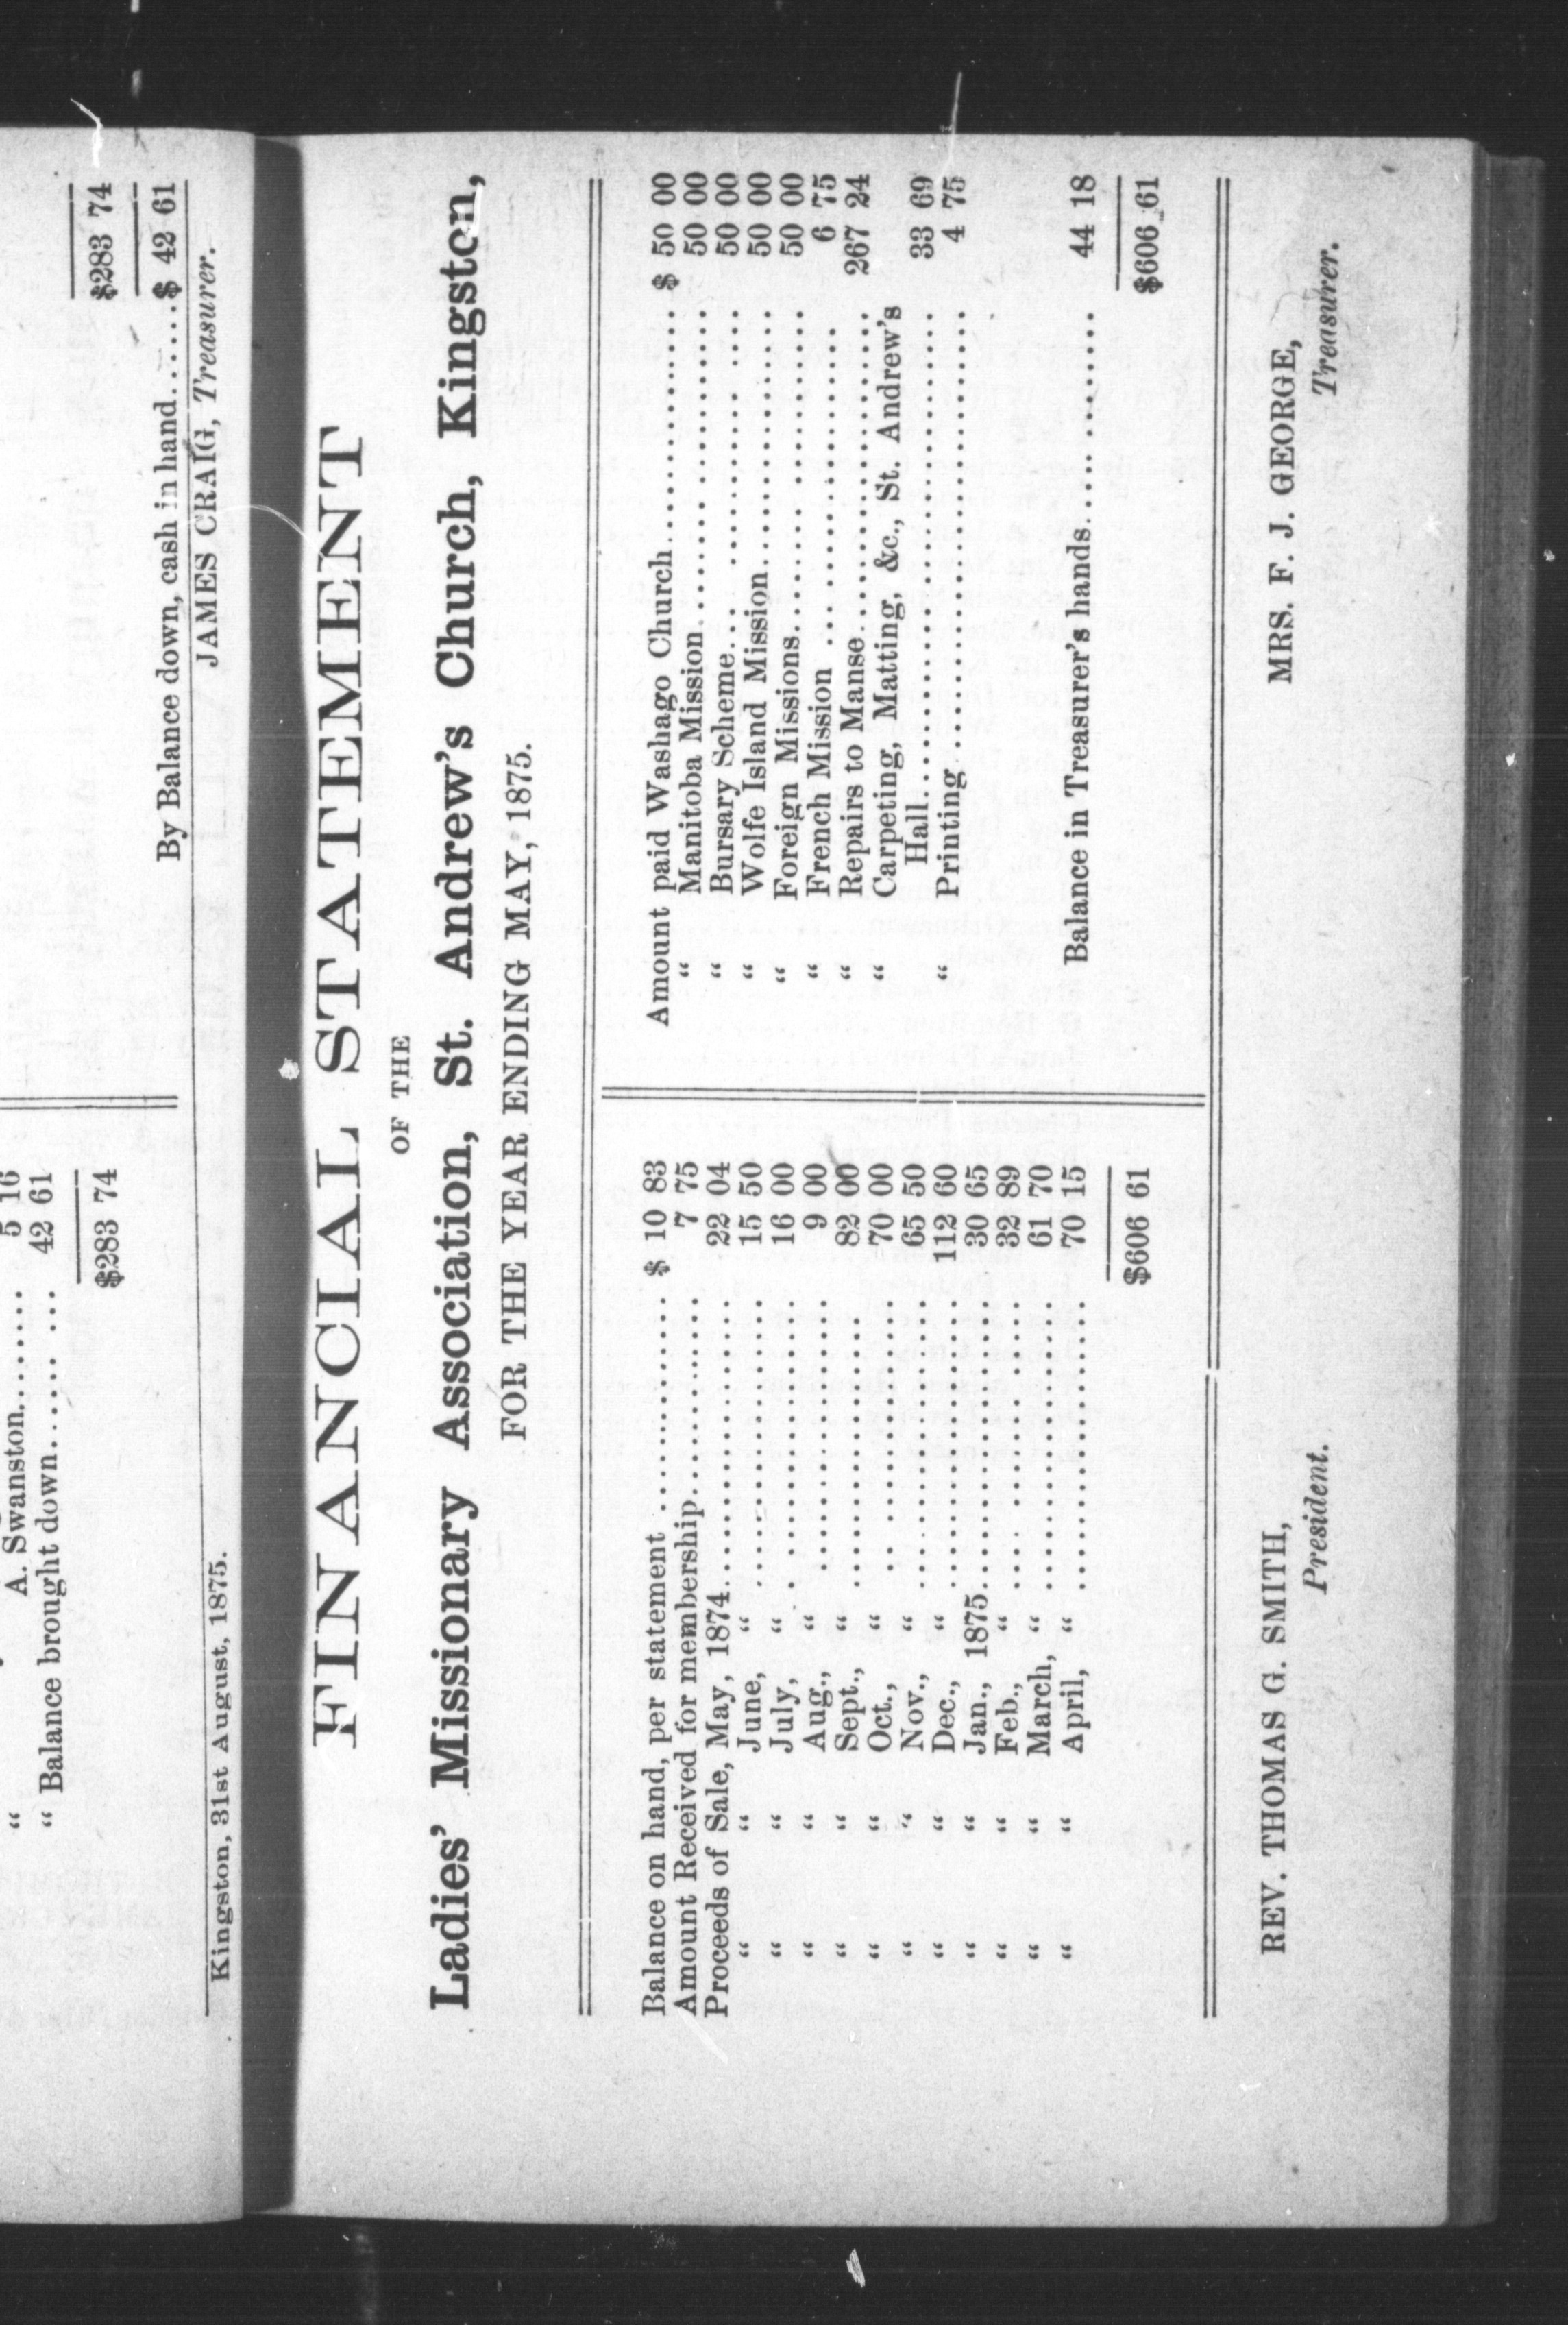 5 16
A. Swanston.......
“ Balance brought down...... ... 42 61
$283 74
$283 74
By Balance down, cash in hand......$ 42 61
JAMES CRAIG, Treasurer.
Kingston, 31st August, 1875.
FINANCIAL STATEMENT
OF THE
Ladies' Missionary Association, St. Andrew's Church, Kingston,
FOR THE YEAR ENDING MAY, 1875.
Balance on hand, per statement .................. $ 10 83
Amount Received for membership.................. 7 75
Proceeds of Sale, May, 1874........................ 22 04
“ “ June, “ ........................ 15 50
“ “ July, “ ........................ 16 00
“ “ Aug., “ ........................ 9 00
“ “ Sept., “ ........................ 82 00
“ “ Oct., “ ........................ 70 00
“ “ Nov., “ ........................ 65 50
“ “ Dec., “ ........................ 112 60
“ “ Jan., 1875........................ 30 65
“ “ Feb., “ ........................ 32 89
“ “ March, “ ........................ 61 70
“ “ April, “ ........................ 70 15
$606 61
Amount paid Washago Church.................. $ 50 00
“ Manitoba Mission........................ 50 00
“ Bursary Scheme... .................. .... 50 00
“ Wolfe Island Mission.................. 50 00
“ Foreign Missions........................ 50 00
“ French Mission ........................ 6 75
“ Repairs to Manse........................ 267 24
“ Carpeting, Matting, &c., St. Andrew's
Hall.............................. 33 69
“ Printing .............................. 4 75
Balance in Treasurer's hands.................. 44 18
$606 61
REV. THOMAS G. SMITH,
President.
MRS. F. J. GEORGE,
Treasurer.